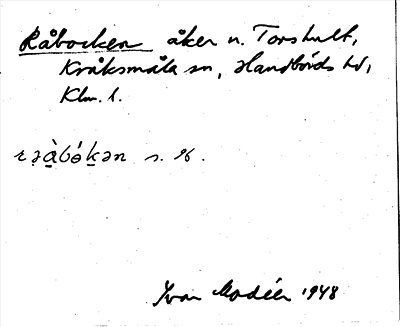 Råbocken åker n. Torshult,
Kråksmåla sn, Handbörds hd,
Klm. l.
rəà̠bó̵k̠ən s. %.
Ivar Modéer 1948